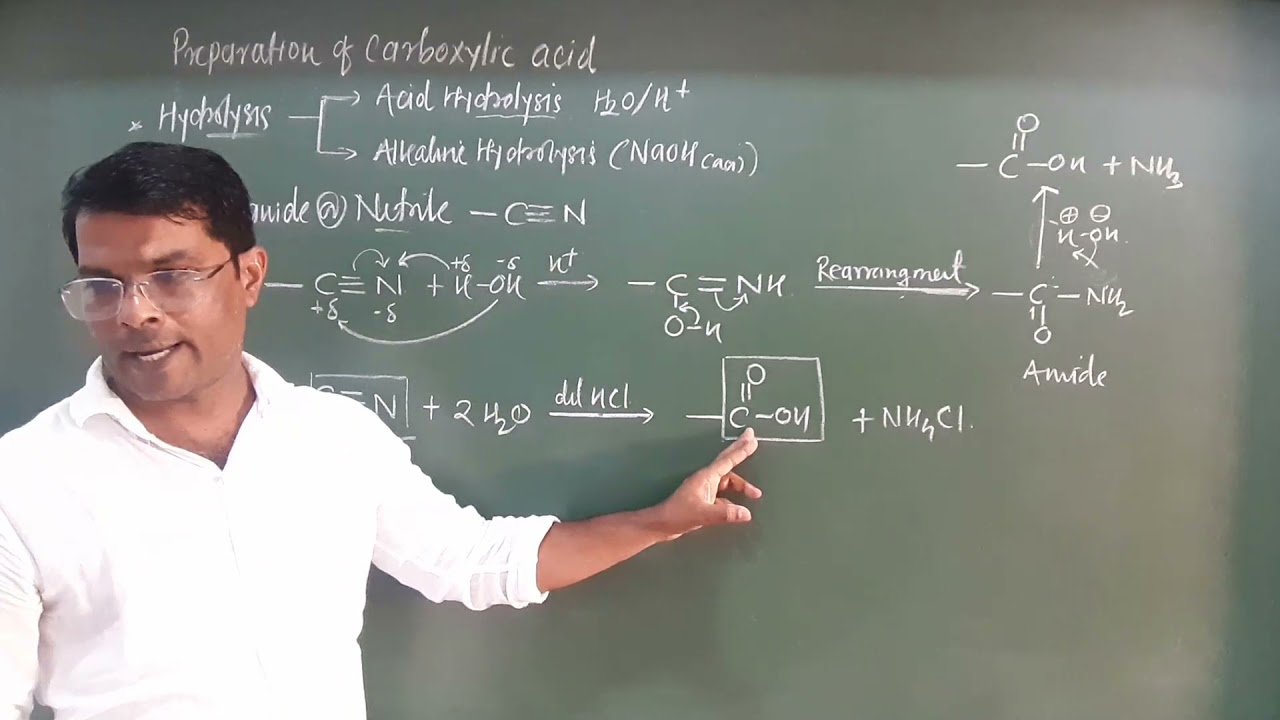 Preparation of Carboxylic acid
* Hydrolysis
Acid Hydrolysis H2O/H+
Alkaline Hydrolysis (NaOH(aq))
anide @ Nitrile –C≡N
–C≡N + H–OH H+ –C=NH Rearrangment –C–NH2
+δ -δ +δ -δ
O–H
O
Amide
⊕ ⊖
H–OH
O
–C–OH + NH3
C≡N + 2H2O dil HCl –C–OH + NH4Cl.
O